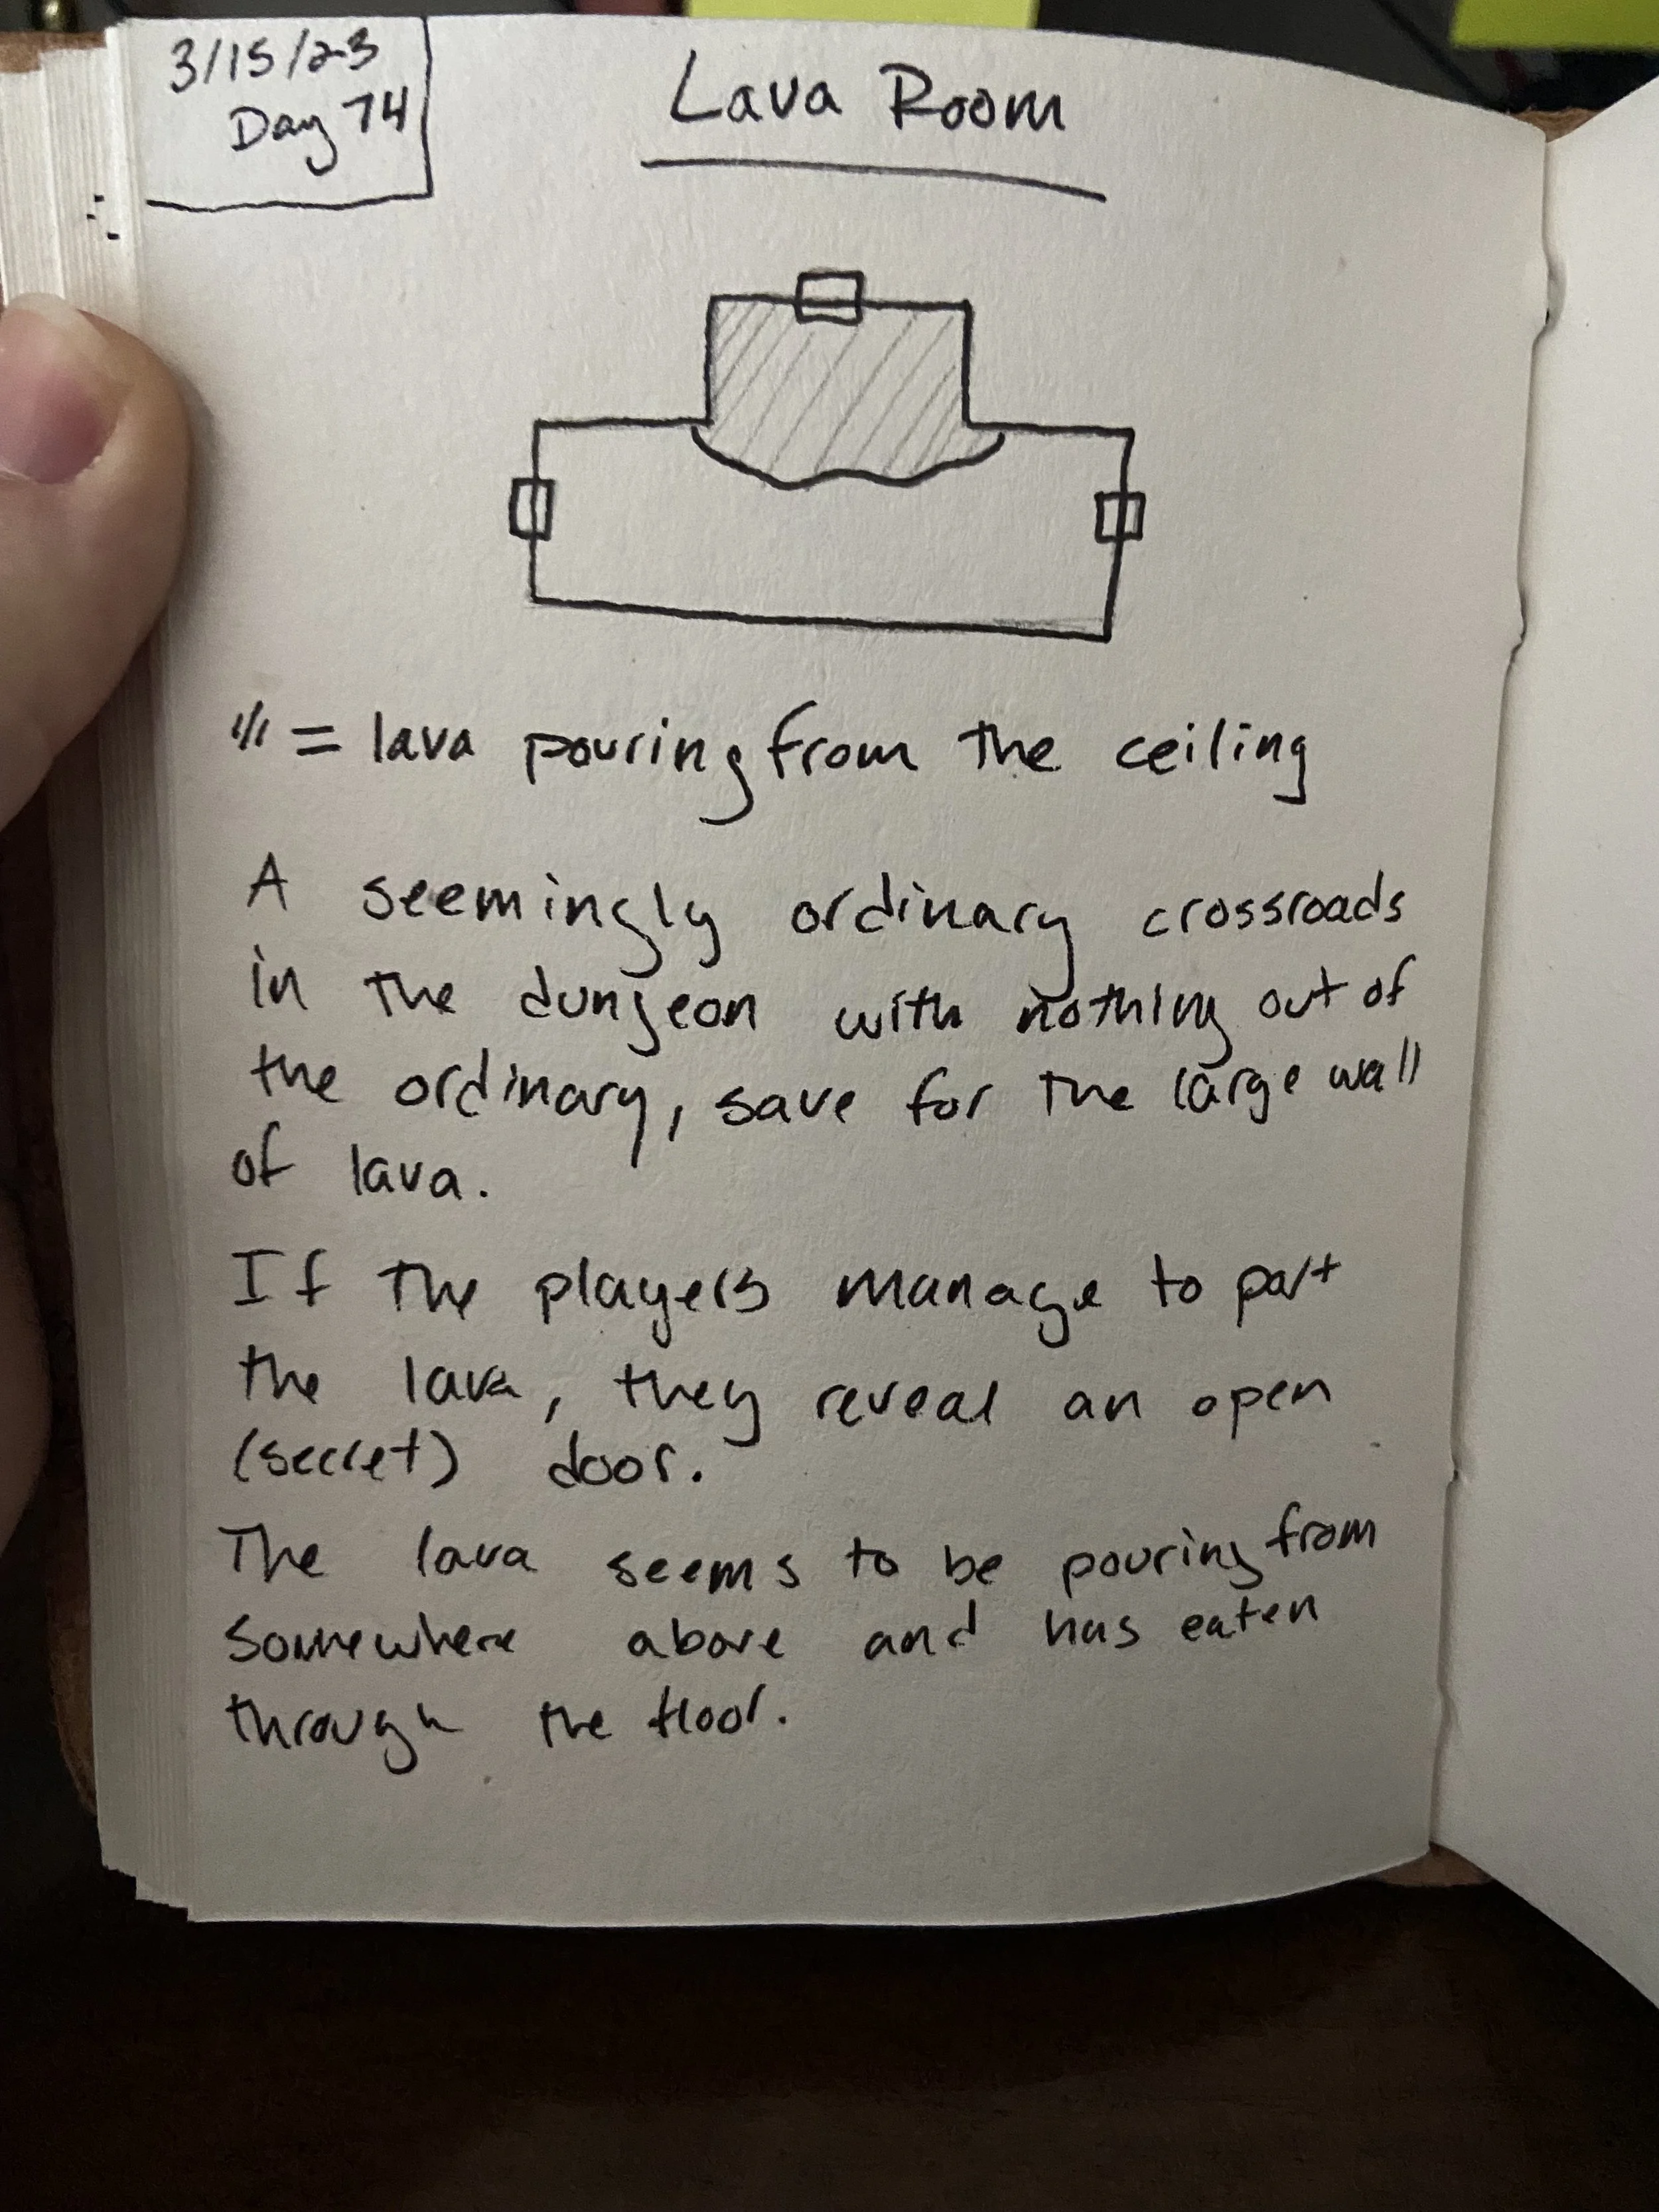 3/15/23
Day 74
Lava Room
//// = lava pouring from the ceiling
A seemingly ordinary crossroads
in the dungeon with nothing out of
the ordinary, save for the large wall
of lava.
If the players manage to part
the lava, they reveal an open
(secret) door.
The lava seems to be pouring from
somewhere above and has eaten
through the floor.